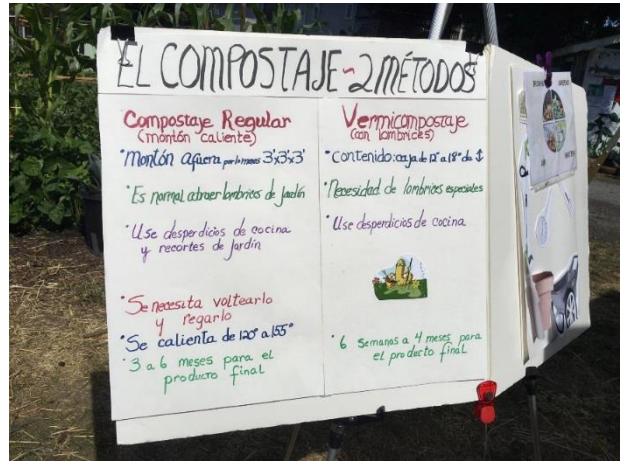 EL COMPOSTAJE ~ 2 MÉTODOS
Compostaje Regular
(montón caliente)
• Montón afuera por lo menos 3'x3'x3'
• Es normal atraer lombrices de jardín
• Use desperdicios de cocina
y recortes de jardín
• Se necesita voltearlo
y regarlo
• Se calienta de 120° a 155°
• 3 a 6 meses para el
producto final
Vermicompostaje
(con lombrices)
• Contenido: caja de 12" a 18" de ↕
• Necesidad de lombrices especiales
• Use desperdicios de cocina
• 6 semanas a 4 meses para
el producto final